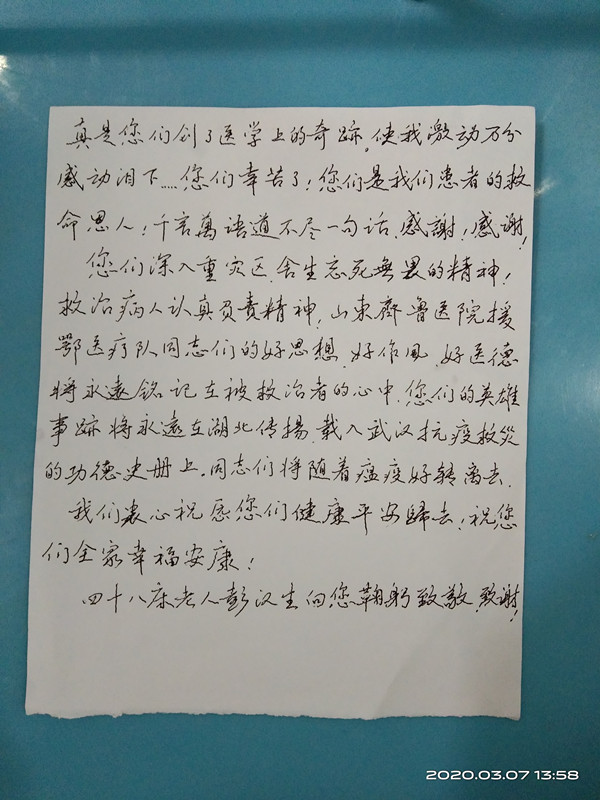 真是您们创了医学上的奇跡。使我激动万分
感动泪下……您们幸苦了!您们是我们患者的救
命恩人!千言萬语道不尽一句话.感謝!感谢!
您们深入重灾区.舍生忘死無畏的精神!
救治病人认真负责精神!山東齊鲁医院援
鄂医疗队同志们的好思想.好作風.好医德
将永遠铭记在被救治者的心中.您们的英雄
事跡将永遠在湖北传揚.载入武汉抗疫救災
的功德史册上。同志们将随着瘟疫好转离去.
我们衷心祝愿您们健康平安歸去!祝您
们全家幸福安康!
四十八床老人彭汉生向您鞠躬致敬.致谢!
2020.03.07 13:58